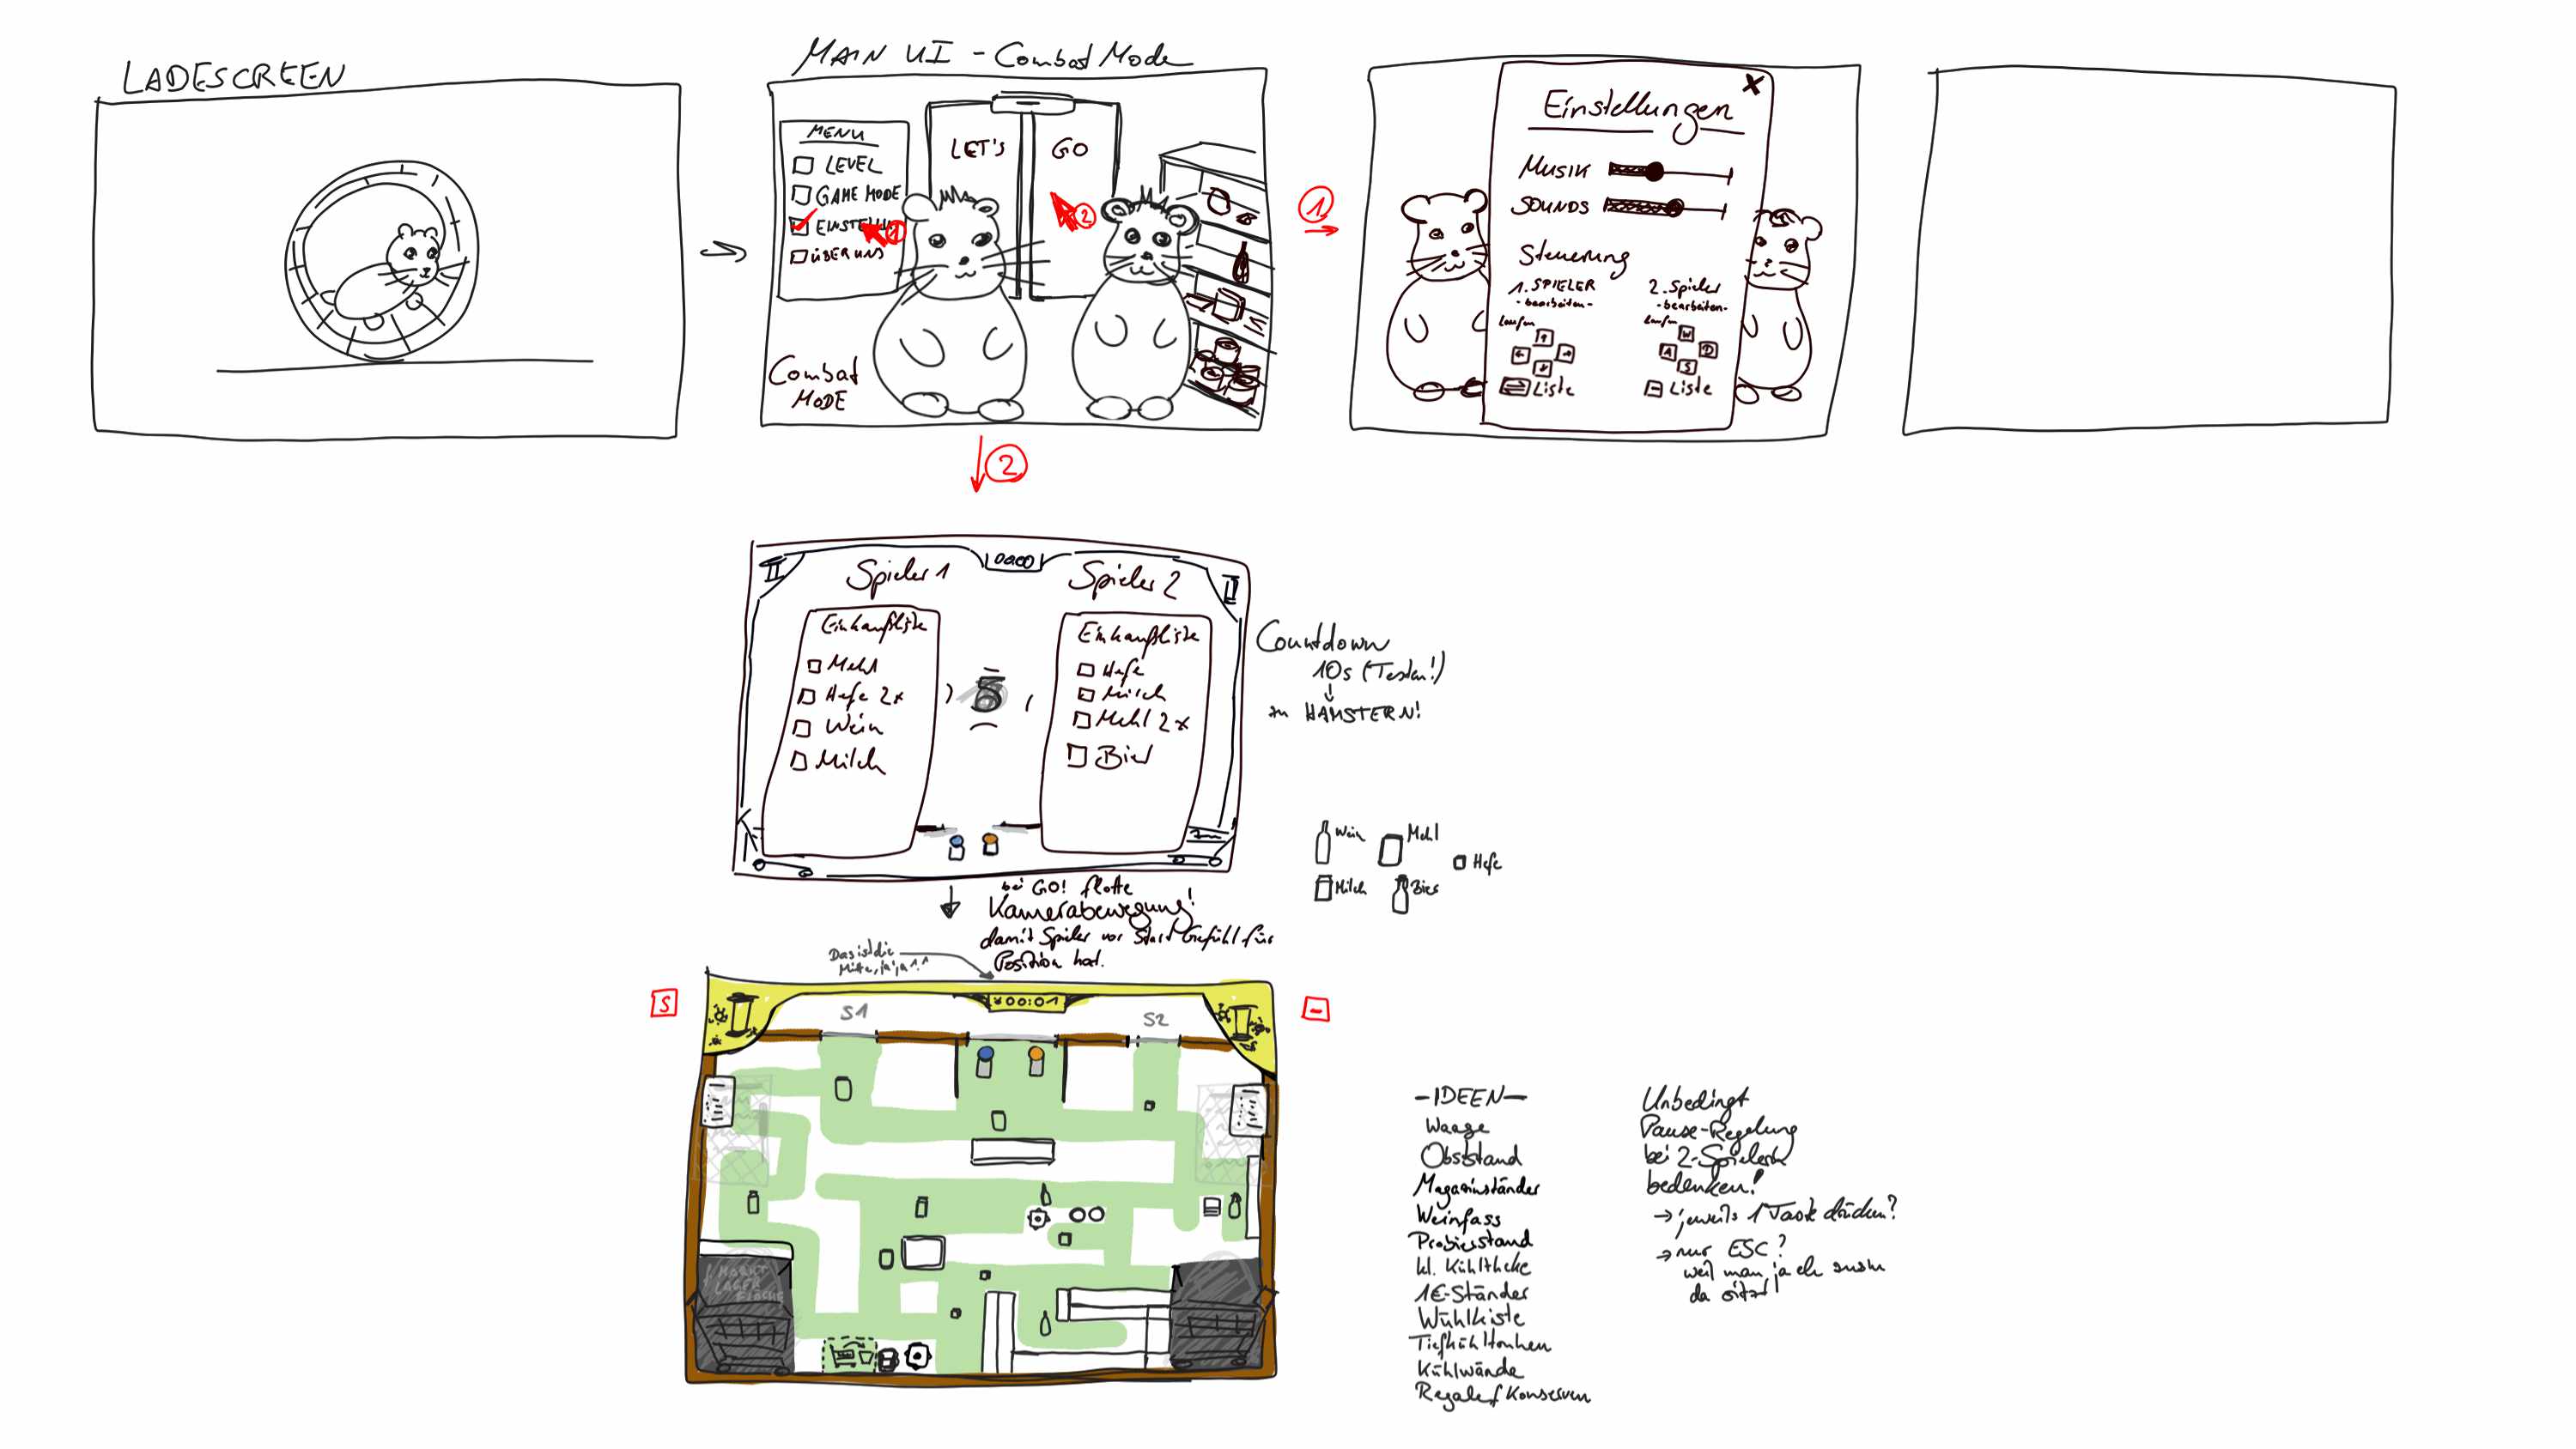 LADESCREEN
MAIN UI - Combat Mode
MENU
LEVEL
GAME MODE
EINSTELL
ÜBER UNS
LET'S GO
1
2
Combat
MODE
1
X
Einstellungen
Musik
SOUNDS
Steuerung
1. SPIELER
- bearbeiten -
laufen
Liste
2. Spieler
- bearbeiten -
laufen
W
A D
S
Liste
2
00:00
Spieler 1
Einkaufsliste
Mehl
Hefe 2x
Wein
Milch
5
Spieler 2
Einkaufsliste
Hefe
Milch
Mehl 2x
Bier
Countdown
10s (Testen!)
zu HAMSTERN!
Wein
Mehl
Hefe
Milch
Bier
bei GO! flotte
Kamerabewegung!
damit Spieler vor Start Gefühl für
Position hat.
Das ist die
Mitte, ja ja ^^
S
-
00:01
S1
S2
MARKT
LAGER
FLÄCHE
- IDEEN -
Waage
Obststand
Magazinständer
Weinfass
Probierstand
kl. Kühltheke
1€-Ständer
Wühlkiste
Tiefkühltruhen
Kühlwände
Regale f Konserven
Unbedingt
Pause-Regelung
bei 2-Spielern
bedenken!
→ jeweils 1 Taste drücken?
→ nur ESC?
weil man ja eh
da sitzt!